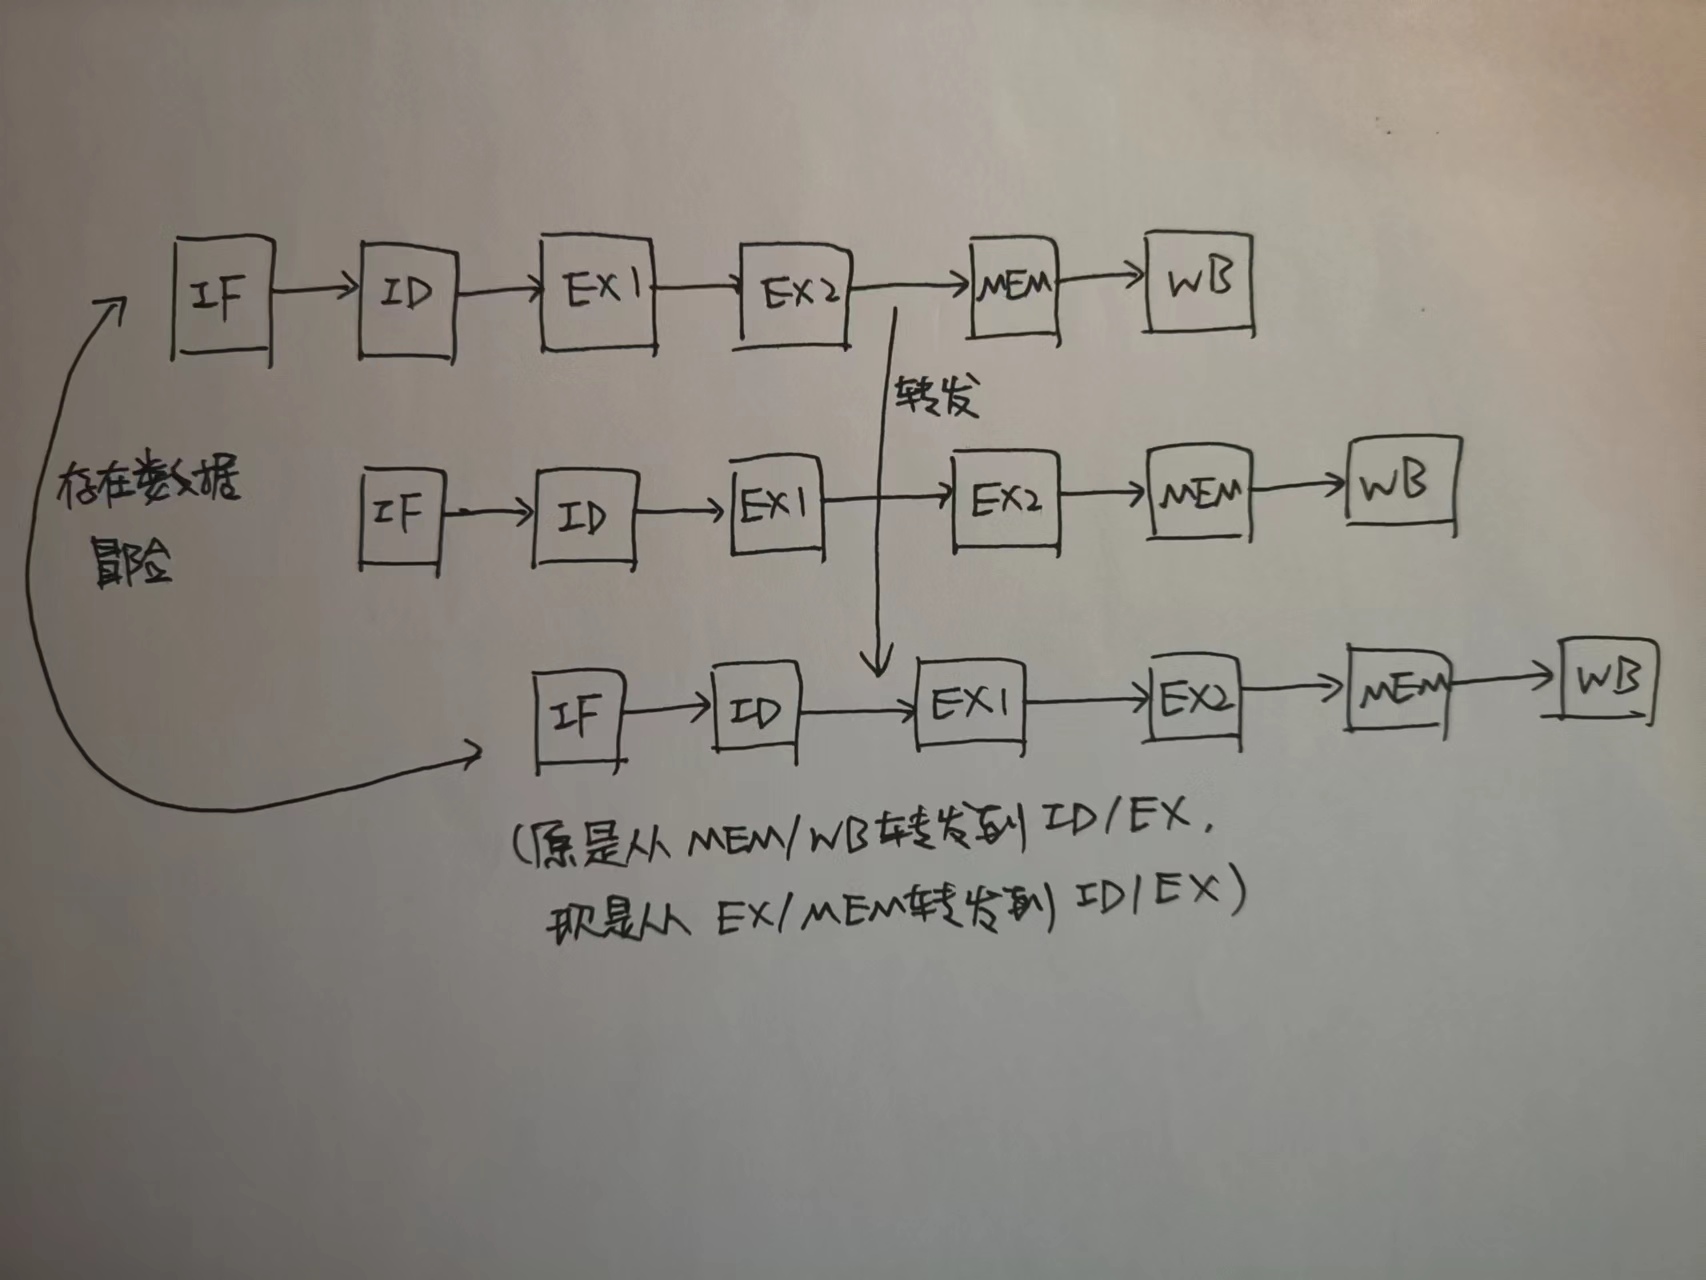 IF ID EX1 EX2 MEM WB
转发
存在数据
冒险
IF ID EX1 EX2 MEM WB
IF ID EX1 EX2 MEM WB
(原是从 MEM/WB转发到 ID/EX,
现是从 EX/MEM转发到 ID/EX)